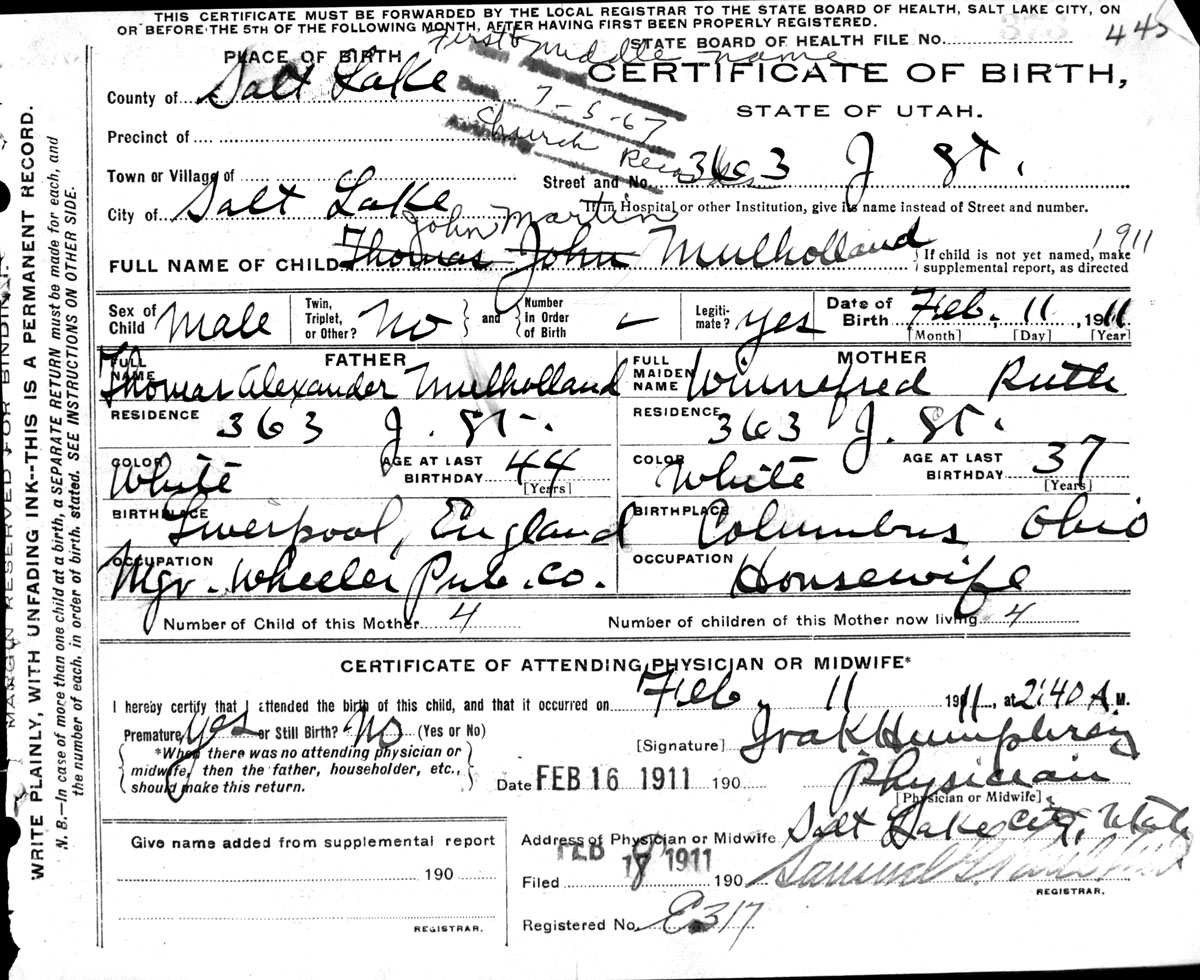 THIS CERTIFICATE MUST BE FORWARDED BY THE LOCAL REGISTRAR TO THE STATE BOARD OF HEALTH, SALT LAKE CITY, ON
OR BEFORE THE 5TH OF THE FOLLOWING MONTH, AFTER HAVING FIRST BEEN PROPERLY REGISTERED.
STATE BOARD OF HEALTH FILE No. 373 445
First & Middle name
7-5-67
Church Records
PLACE OF BIRTH
CERTIFICATE OF BIRTH,
STATE OF UTAH.
County of Salt Lake
Precinct of
Town or Village of
Street and No. 363 J St.
City of Salt Lake
If in Hospital or other Institution, give its name instead of Street and number.
John Martin
FULL NAME OF CHILD Thomas John Mulholland
1911
If child is not yet named, make
supplemental report, as directed
Sex of Child Male
Twin, Triplet, or Other? No
and Number In Order of Birth –
Legiti-mate? yes
Date of Birth Feb. 11, 1911
[Month] [Day] [Year]
FATHER
FULL NAME Thomas Alexander Mulholland
RESIDENCE 363 J. St.
COLOR White
AGE AT LAST BIRTHDAY 44
[Years]
BIRTHPLACE Liverpool, England
OCCUPATION Mgr. Wheeler Pub. Co.
MOTHER
FULL MAIDEN NAME Winnefred Ruth
RESIDENCE 363 J. St.
COLOR White
AGE AT LAST BIRTHDAY 37
[Years]
BIRTHPLACE Columbus Ohio
OCCUPATION Housewife
Number of Child of this Mother 4
Number of children of this Mother now living 4
CERTIFICATE OF ATTENDING PHYSICIAN OR MIDWIFE*
I hereby certify that I attended the birth of this child, and that it occurred on Feb. 11 1911, at 2:40 A.M.
Premature yes or Still Birth? No (Yes or No)
*When there was no attending physician or
midwife, then the father, householder, etc.,
should make this return.
[Signature] Ira K Humphrey
Date FEB 16 1911 190
Physician
[Physician or Midwife]
Address of Physician or Midwife Salt Lake City, Utah
FEB 17 1911
Filed 190
Samuel G.
REGISTRAR.
Registered No. E317
Give name added from supplemental report
190
REGISTRAR.
MARGIN RESERVED FOR BINDING.
WRITE PLAINLY, WITH UNFADING INK--THIS IS A PERMANENT RECORD.
N. B.—In case of more than one child at a birth, a SEPARATE RETURN must be made for each, and
the number of each, in order of birth, stated. SEE INSTRUCTIONS ON OTHER SIDE.